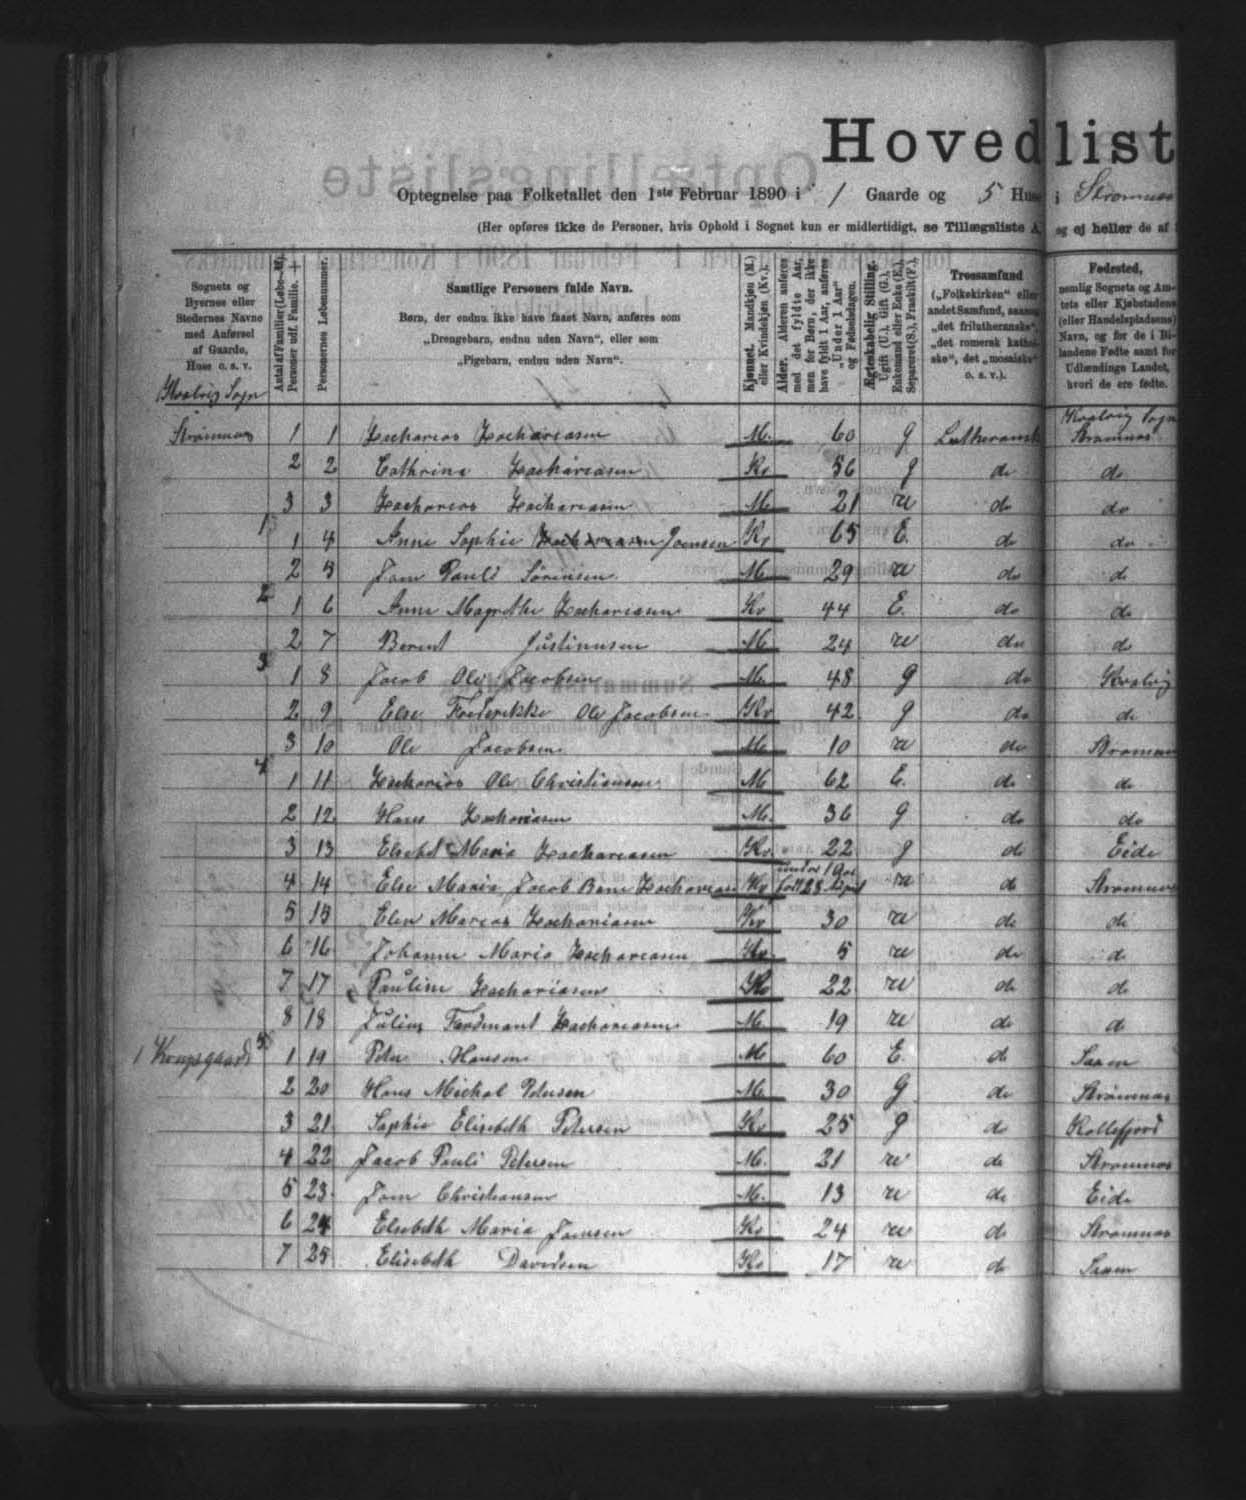 Hovedlist
Optegnelse paa Folketallet den 1ste Februar 1890 i 1 Gaarde og 5 Huse i Strømnæs
(Her opføres ikke de Personer, hvis Ophold i Sognet kun er midlertidigt, se Tillægsliste A, og ej heller de af
Sognets og Byernes eller Stedernes Navne med Anførsel af Gaarde, Huse o. s. v.
Antal af Familier (Løbe-Nr.) Personer udf. Familie.
Personernes Løbenummer.
Samtlige Personers fulde Navn.
Børn, der endnu ikke have faaet Navn, anføres som
„Drengebarn, endnu uden Navn“, eller som
„Pigebarn, endnu uden Navn“.
Kjønnet. Mandkjøn (M.) eller Kvindekjøn (Kv.).
Alder. Alderen anføres med det fyldte Aar, men for Børn, der ikke have fyldt 1 Aar, anføres „Under 1 Aar“ og Fødselsdagen.
Ægteskabelig Stilling. Ugift (U.), Gift (G.), Enkemand eller Enke (E.), Separeret (S.), Fraskilt (F.).
Trossamfund („Folkekirken“ eller andet Samfund, saasom „det frilutheranske“, „det romersk katholske“, det „mosaiske“ o. s. v.).
Fødested, nemlig Sognets og Amtets eller Kjøbstadens (eller Handelspladsens) Navn, og for de i Bilandene Fødte samt for Udlændinge Landet, hvori de ere fødte.
Kvalvig Sogn
Kvalvig Sogn
Strømnæs 1 1 Zacharias Zachariasen M. 60 g Lutheransk Strømnæs
2 2 Cathrine Zachariasen Kv 56 g do do
3 3 Zacharias Zachariasen M 21 u do do
1 1 4 Anne Sophie Zachariasen Joensen Kv 65 E. do do
2 5 Joen Pauli Sørensen M 29 u do do
2 1 6 Anne Magrethe Zachariasen Kv 44 E. do do
2 7 Berent Justinusen M. 24 u do do
3 1 8 Jacob Ole Jacobsen M. 48 g do Kvalvig
2 9 Else Frederikke Ole Jacobsen Kv 42 g do do
3 10 Ole Jacobsen M 10 u do Strømnæs
4 1 11 Zacharias Ole Christiansen M 62 E. do do
2 12 Hans Zachariasen M. 36 g do do
3 13 Elsebet Maria Zachariasen Kv. 22 g do Eide
4 14 Else Maria Jacob Bene Zachariasen Kv under 1 Aar født 28 April u do Strømnæs
5 15 Elen Marcas Zachariasen Kv 30 u do do
6 16 Johanne Maria Zachariasen Kv. 5 u do do
7 17 Pauline Zachariasen Kv 22 u do do
8 18 Julius Ferdinant Zachariasen M. 19 u do do
1 Kongsgaard 5 1 19 Peter Hansen M 60 E. do Saxen
2 20 Hans Michal Petersen M. 30 G do Strømnæs
3 21 Sophie Elisebeth Petersen Kv 25 g do Kollefjord
4 22 Jacob Pauli Petersen M. 21 u do Strømnæs
5 23 Joen Christiansen M. 13 u do Eide
6 24 Elsebeth Maria Joensen Kv 24 u do Strømnæs
7 25 Elisebeth Davidsen Kv 17 u do Saxen